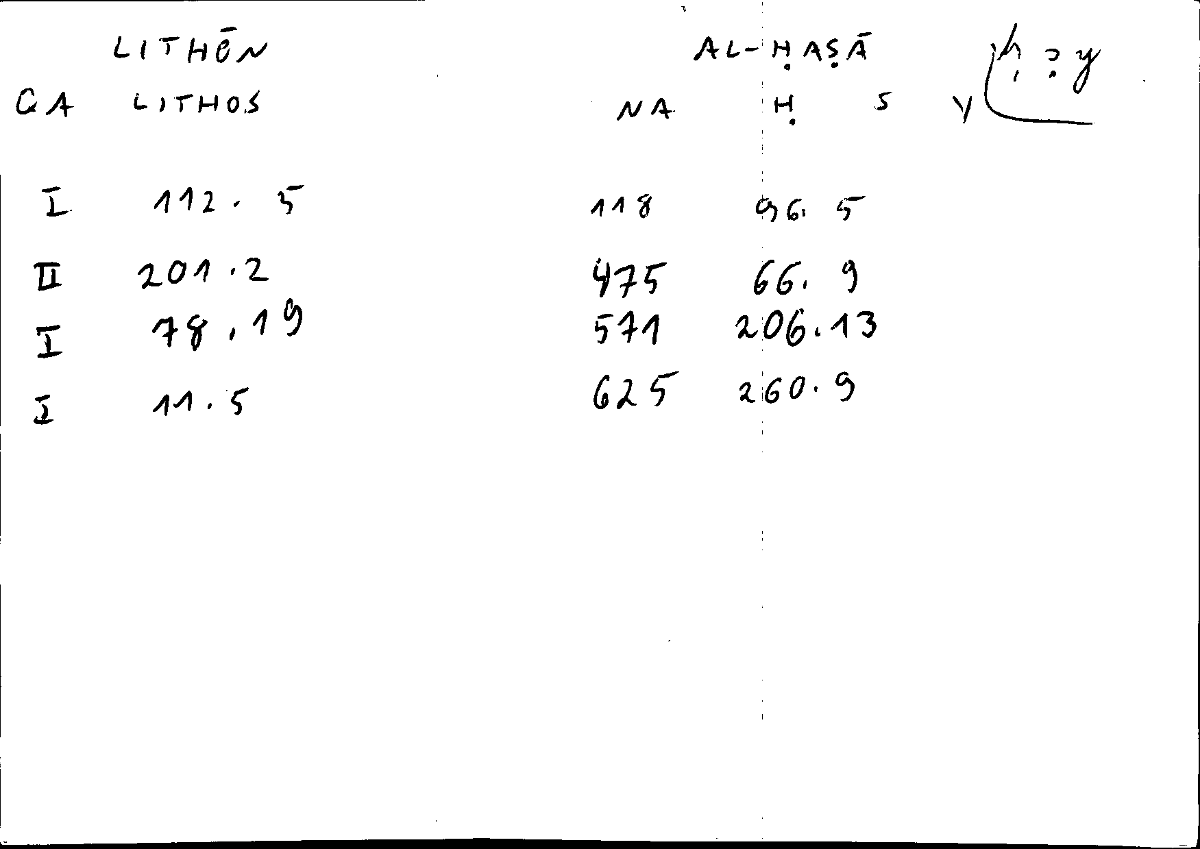 LITHĒN AL-ḤAṢĀ
GA LITHOS NA Ḥ S Y
I 112. 5 118 96. 5
II 201.2 475 66. 9
I 78.19 571 206.13
I 11.5 625 260.9